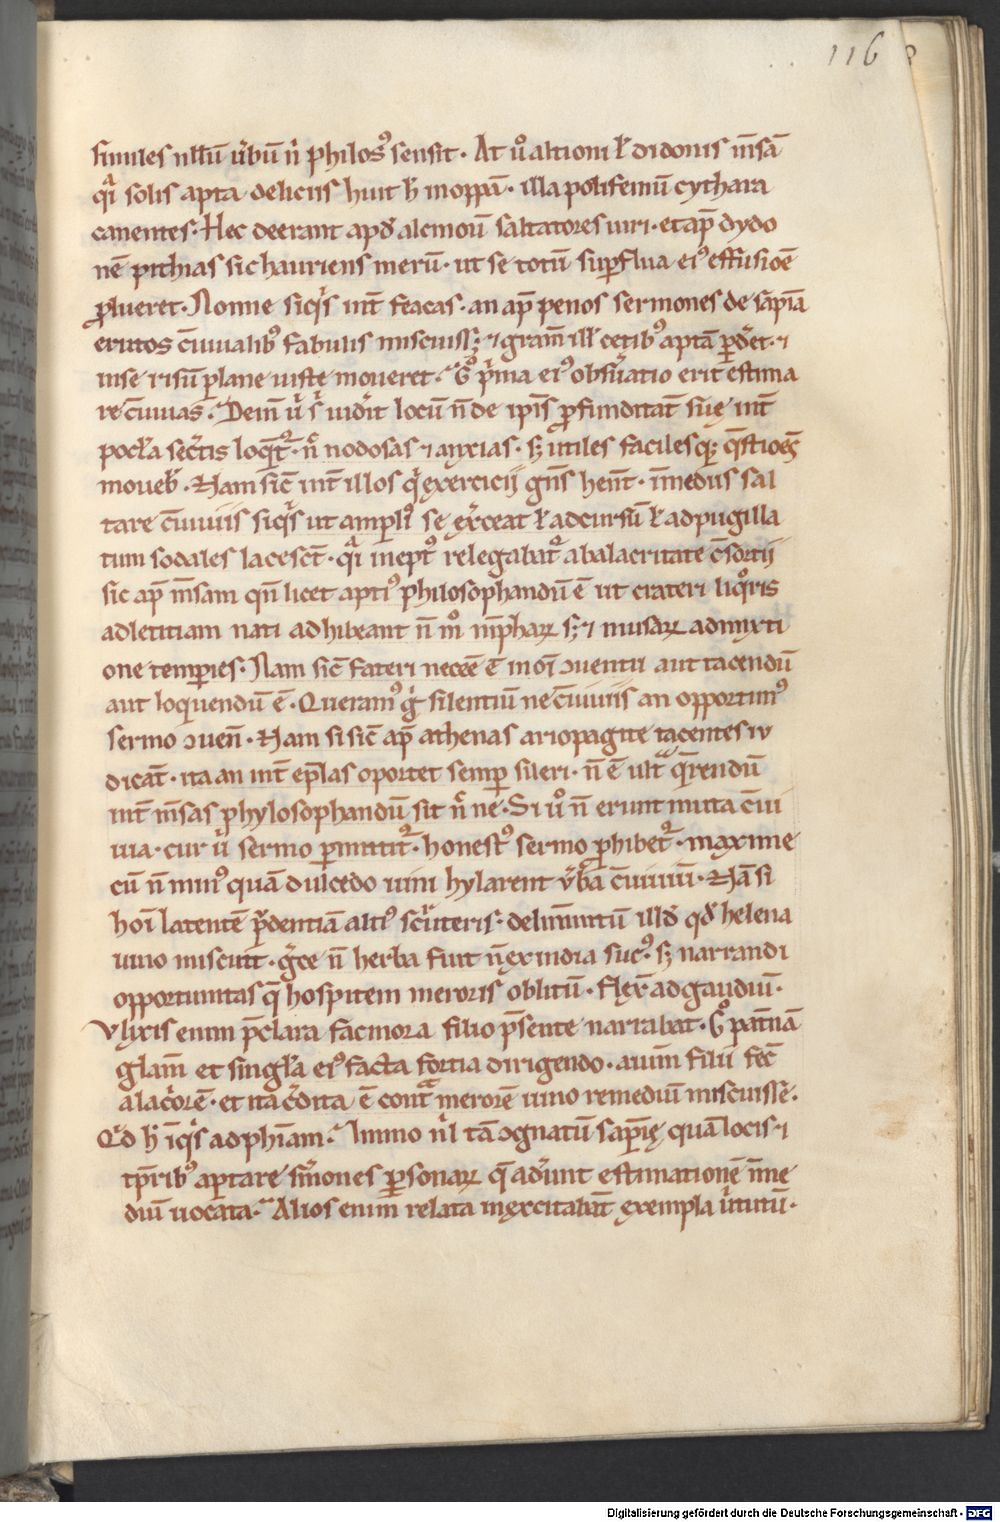 116
similes nllū u̾bū n̄ philosꝰ sensit. At u̾o altioni ł didonis m̄sā
q̾i solis apta deliciis huit h̾ moppā. illa polifemū cythara
canentes. Hec deerant apd̾ alcinoū saltatores uiri. et ap̄ dydo
nē pithias sic hauriens merū. ut se totū suꝑflua eiꝰ effusioē
ꝓlueret. Nonne siq̾s int̄ feacas. an ap̄ penos sermones de sapīa
erutos c̄uiualibꝰ fabulis miscuiss; ⁊ gram̄ ill̾ cetibꝰ aptā ꝑd̾et. ⁊
in se risū plane iuste moueret. G̾o p̾ma eiꝰ obs̾uatio erit estima
re c̄uiuas. Dein̄ u̾ s̾ uid̾it locū n̄ de ip̄is ꝓfunditat̄ suę int̄
pocl̾a sec̾tis loq̄t̾. n̄ nodosas ⁊ anxias. s; utiles faciles q; q̄stioēs
moueb̾. Nam sic̄ int̄ illos q̾ exercicij gn̄s hen̄t. in̄ medus sal
tare c̄uiuiis siq̾s ut ampliꝰ se ex̾ceat ł ad cursū ł ad pugilla
tum sodales lacesc̄t. q̾i ineptꝰ relegabat̾ ab alacritate c̄sortij
sic ap̄ m̄sam qn̄ licet aptiꝰ philosophandū ē ut crateri liq̾oris
ad letitiam nati adhibeant n̄ m̊ nīpharꝝ s; ⁊ musarꝝ admixti
one temꝑies. Nam sic̄ fateri necēe ē in oī ɔuentu aut tacendū
aut loquendū ē. Queramꝰ g̾ silentiū ne c̄uiuiis an opportunꝰ
sermo ɔuen̄. Nam si sic̄ ap̄ athenas ariopagite tacentes iu
dicāt. ita an int̄ epl̄as oportet semꝑ sileri. n̄ ē ult̾ q̄rendū
int̄ m̄sas phylosophandū sit n̄ ne. Si u̾o n̄ erunt muta c̄ui
uia. cur u̾ sermo ꝑmittit̾. honestꝰ sermo ꝓhibet̾. maxime
cū n̄ minꝰ quā dulcedo uini hylarent u̾ba c̄uiuiū. Nā si
hoī latentē p̾dentiā altiꝰ scr̾teris. delinim̄tū illd̾ qd̾ helena
uino miscuit̄. g̾ce n̄ herba fuit n̄ ex india sucꝰ. s; narrandi
opportunitas q̄ hospitem meroris oblitū. flex̄ ad gaudiū.
Vlixis enim p̄clara facinora filio p̄sente narrabat. G̾o pat̄nā
glam̄ et singl̾a eiꝰ facta fortia dirigendo. animū filii fec̄
alac̾orē. et ita c̾dita ē cont̾ merorē uino remediū miscuisse.
Qd̾ h̾ iq̾s ad phiam̄. Immo nl̾ tā ɔgnatū sapīę quā locis ⁊
tp̄ribꝰ aptare s̾mones ꝑsonarꝝ q̄ ad̾unt estimationē ī me
diū uocata. Alios enim relata in excitabāt exempla u̾tutū.